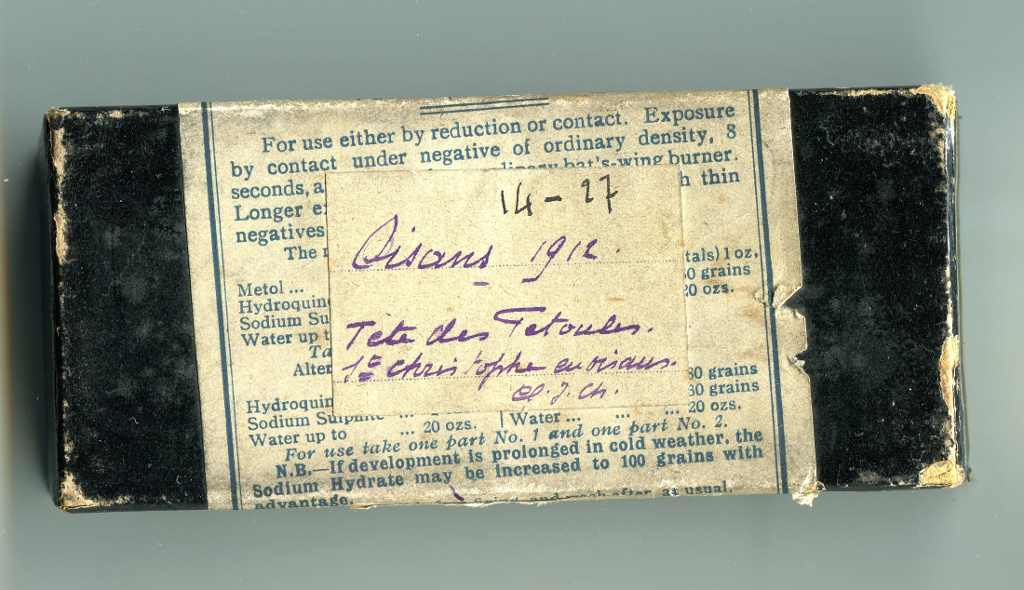 For use either by reduction or contact. Exposure
by contact under negative of ordinary density, 8
seconds, a dinary bat's-wing burner.
Longer e thin
negatives
14 - 27
Oisans 1912.
The tals) 1 oz,
Metol ... grains
Hydroquin 20 ozs.
Sodium Su
Water up t
Tête des Fetoules.
Ta
St Christophe en oisans.
Alter 30 grains
Cl. J. Ch.
Hydroquin 30 grains
Sodium Sulphite ... Water ... ... ... 20 ozs.
Water up to ... 20 ozs.
For use take one part No. 1 and one part No. 2.
N.B.—If development is prolonged in cold weather, the
Sodium Hydrate may be increased to 100 grains with
advantage. and wash after, as usual.